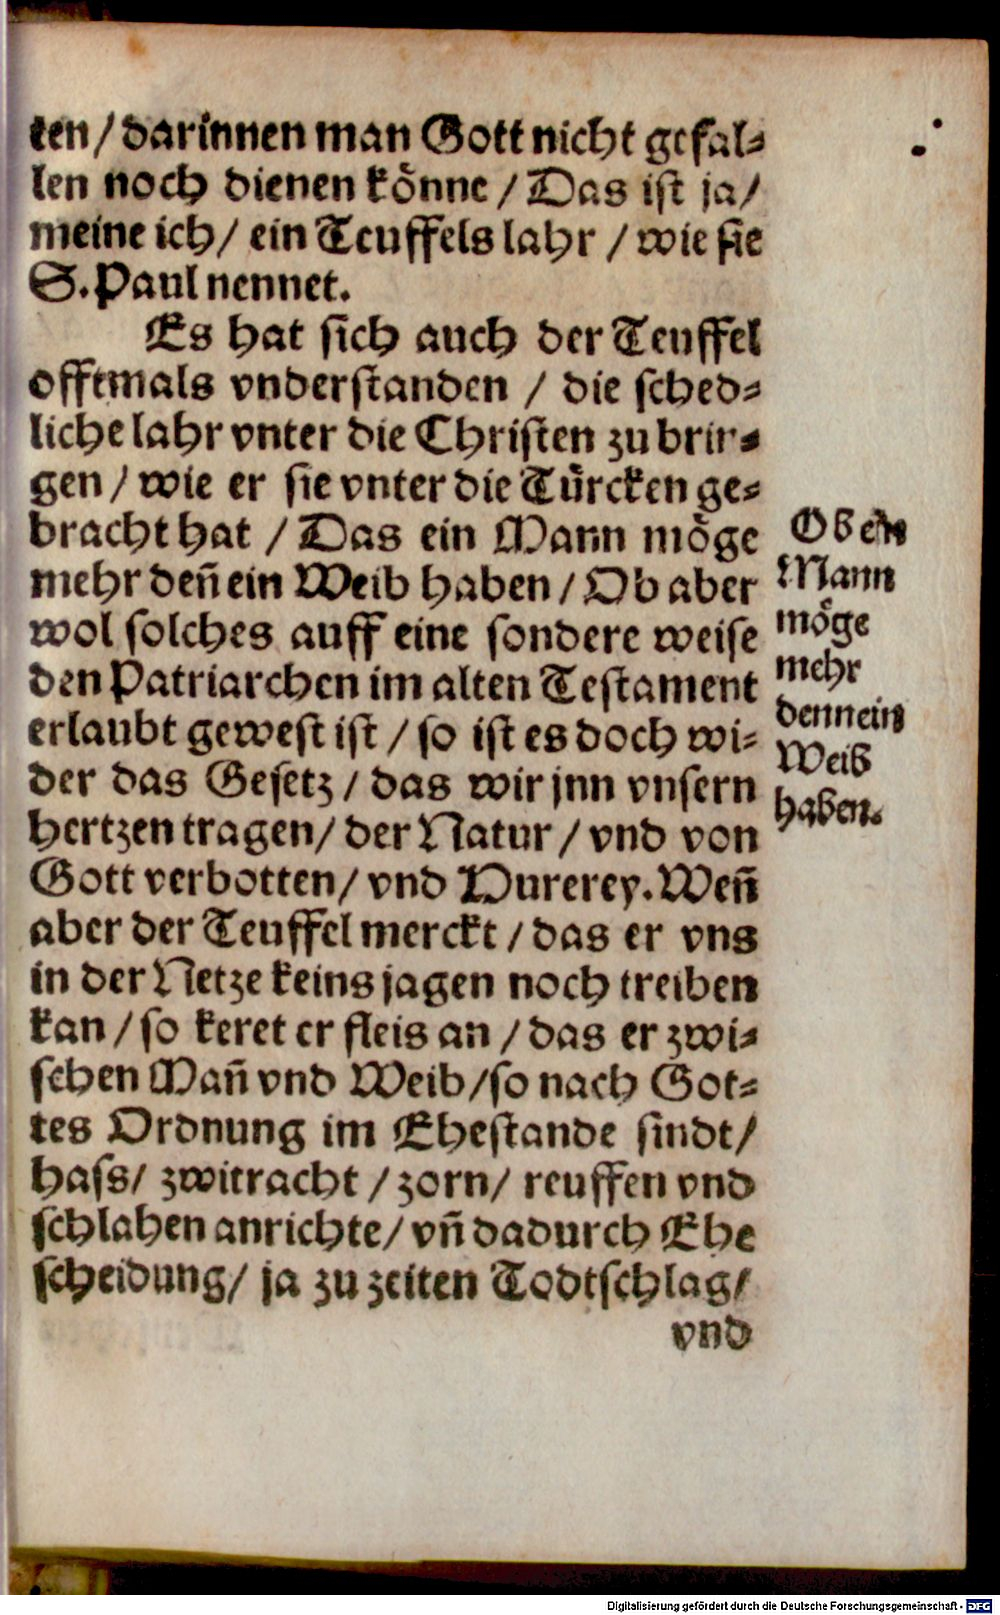 ten/ darinnen man Gott nicht gefal⸗
len noch dienen koͤnne / Das ist ja/
meine ich/ ein Teuffels lahr / wie sie
S. Paul nennet.
Es hat sich auch der Teuffel
offtmals vnderstanden / die sched⸗
liche lahr vnter die Christen zu brin⸗
gen / wie er sie vnter die Tuͤrcken ge⸗
bracht hat / Das ein Mann moͤge
mehr deñ ein Weib haben / Ob aber
wol solches auff eine sondere weise
den Patriarchen im alten Testament
erlaubt gewest ist / so ist es doch wi⸗
der das Gesetz / das wir jnn vnsern
hertzen tragen/ der Natur / vnd von
Gott verbotten/ vnd Hurerey. Weñ
aber der Teuffel merckt / das er vns
in der Netze keins jagen noch treiben
kan / so keret er fleis an / das er zwi⸗
schen Mañ vnd Weib /so nach Got⸗
tes Ordnung im Ehestande sindt/
hass/ zwitracht / zorn/ reuffen vnd
schlahen anrichte/ vñ dadurch Ehe
scheidung/ ja zu zeiten Todtschlag/
vnd
Ob ein
Mann
moͤge
mehr
denn ein
Weib
haben.
Digitalisierung gefördert durch die Deutsche Forschungsgemeinschaft - DFG